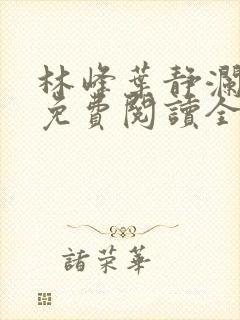 林峰葉静瀾
免費閱讀全
諸荣華